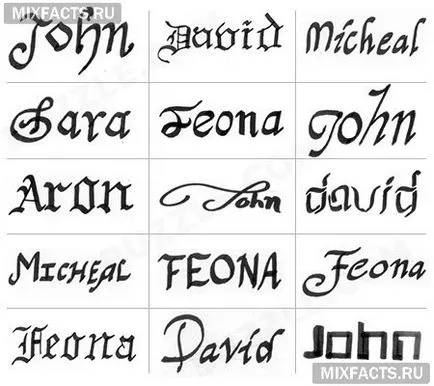 MIXFACTS.RU
John David Micheal
Sara Feona John
Aron John david
MICHEAL FEONA Feona
Feona David John
MIXFACTS.RU